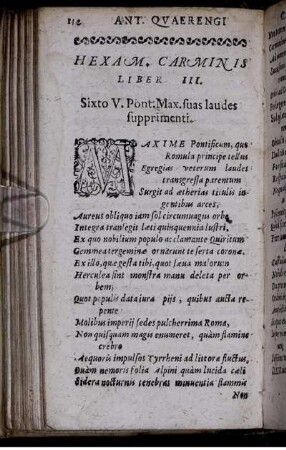 112 ANT. QVAERENGI
HEXAM. CARMINIS
LIBER III.
Sixto V. Pont. Max. suas laudes
supprimenti.
MAXIME Pontificum, quo
Romula principe tellus
Egregias veterum laudes
transgressa parentum
Surgit ad ætherias titulis in
gentibus arces,
Aureus obliquo iam sol circumuagus orbe
Integra transegit læti quinquennia lustri,
Ex quo nobilium populo acclamante Quiritum
Gemmea tergeminæ ornarunt te serta coronæ.
Ex illo, quæ gesta tibi, quot sæua malorum
Herculea sint monstra manu deleta per or
bem;
Quot populis data iura pijs, quibus aucta re
pente
Molibus imperij sedes pulcherrima Roma,
Non quisquam magis enumeret, quàm flamine
crebro
Aequoris impulsos Tyrrheni ad littora fluctus,
Quàm nemoris folia Alpini quàm lucida cæli
Sidera nocturnis tenebras minuentia flammis
Non